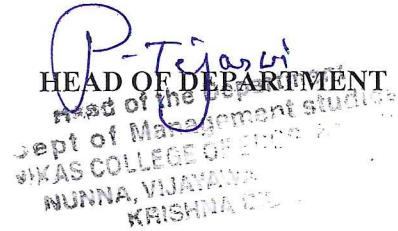 P-Tejaswi
HEAD OF DEPARTMENT
Head of the Department
Dept of Management studies
VIKAS COLLEGE OF
NUNNA, VIJAYAWA
KRISHNA